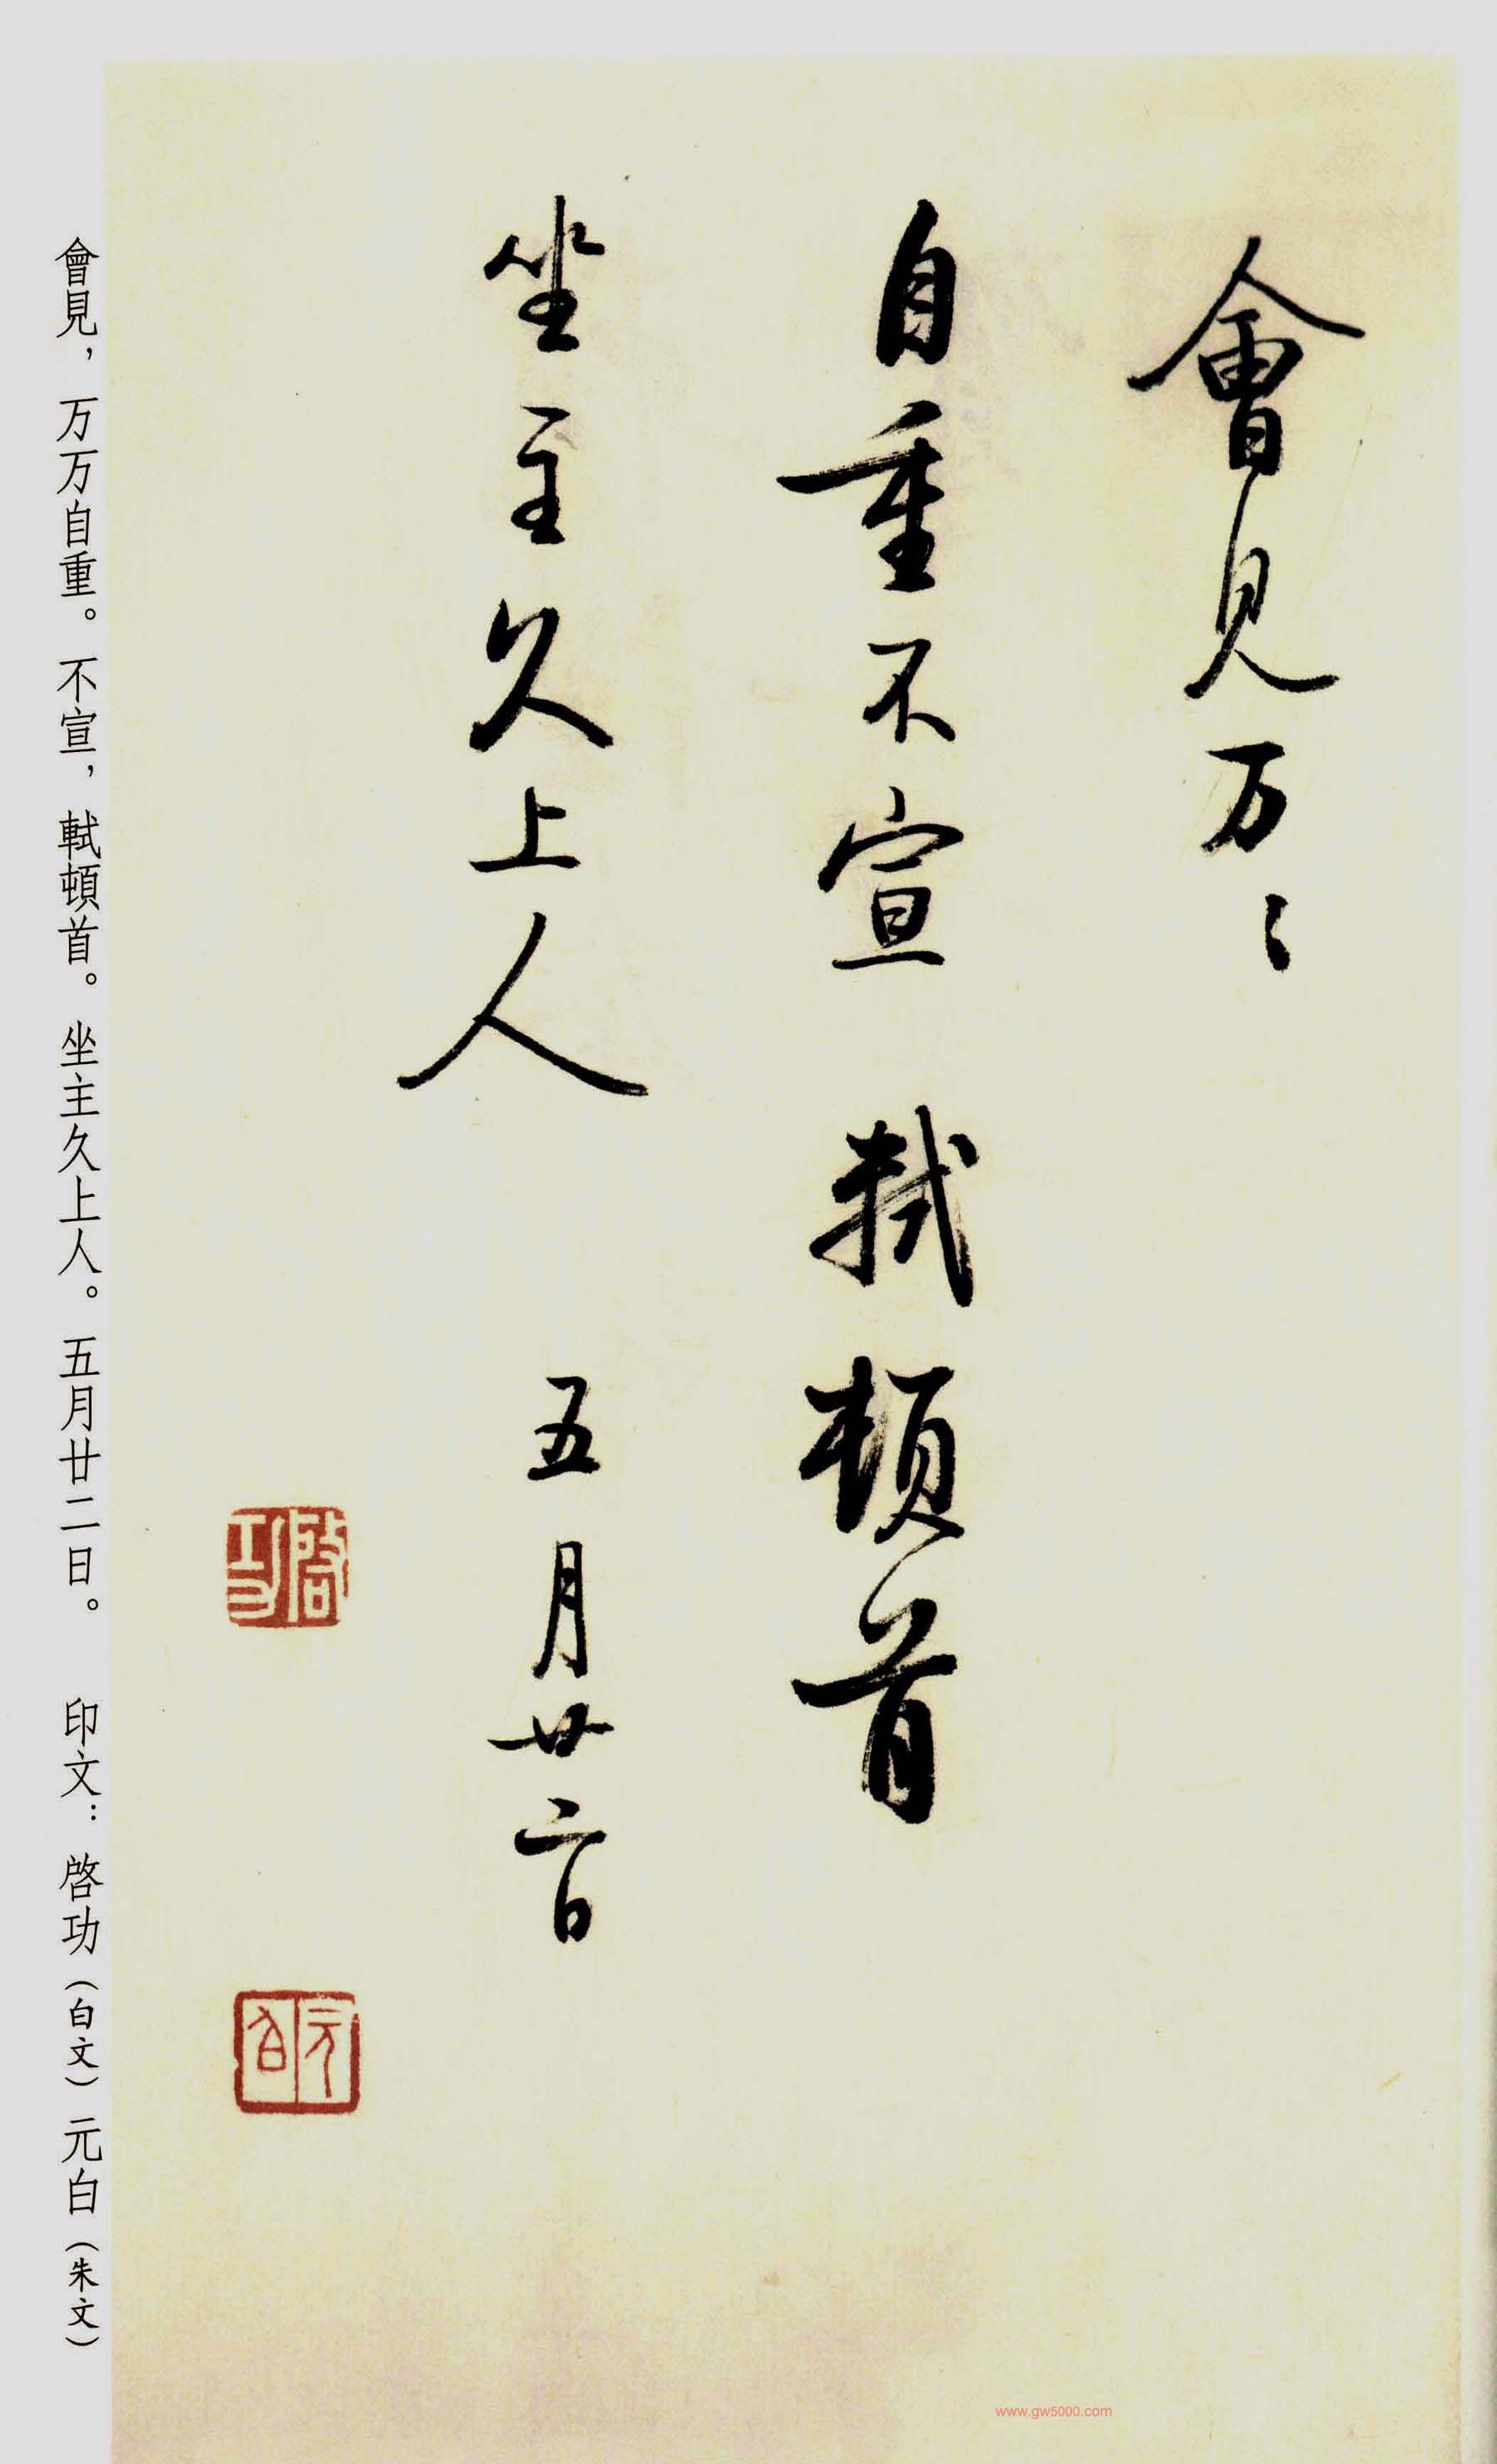 會見万〻
自重不宣 軾頓首
坐主久上人 五月廿二日
啓功
元白
會見，万万自重。不宣，軾頓首。坐主久上人。五月廿二日。 印文：啓功（白文）元白（朱文）
www.gw5000.com